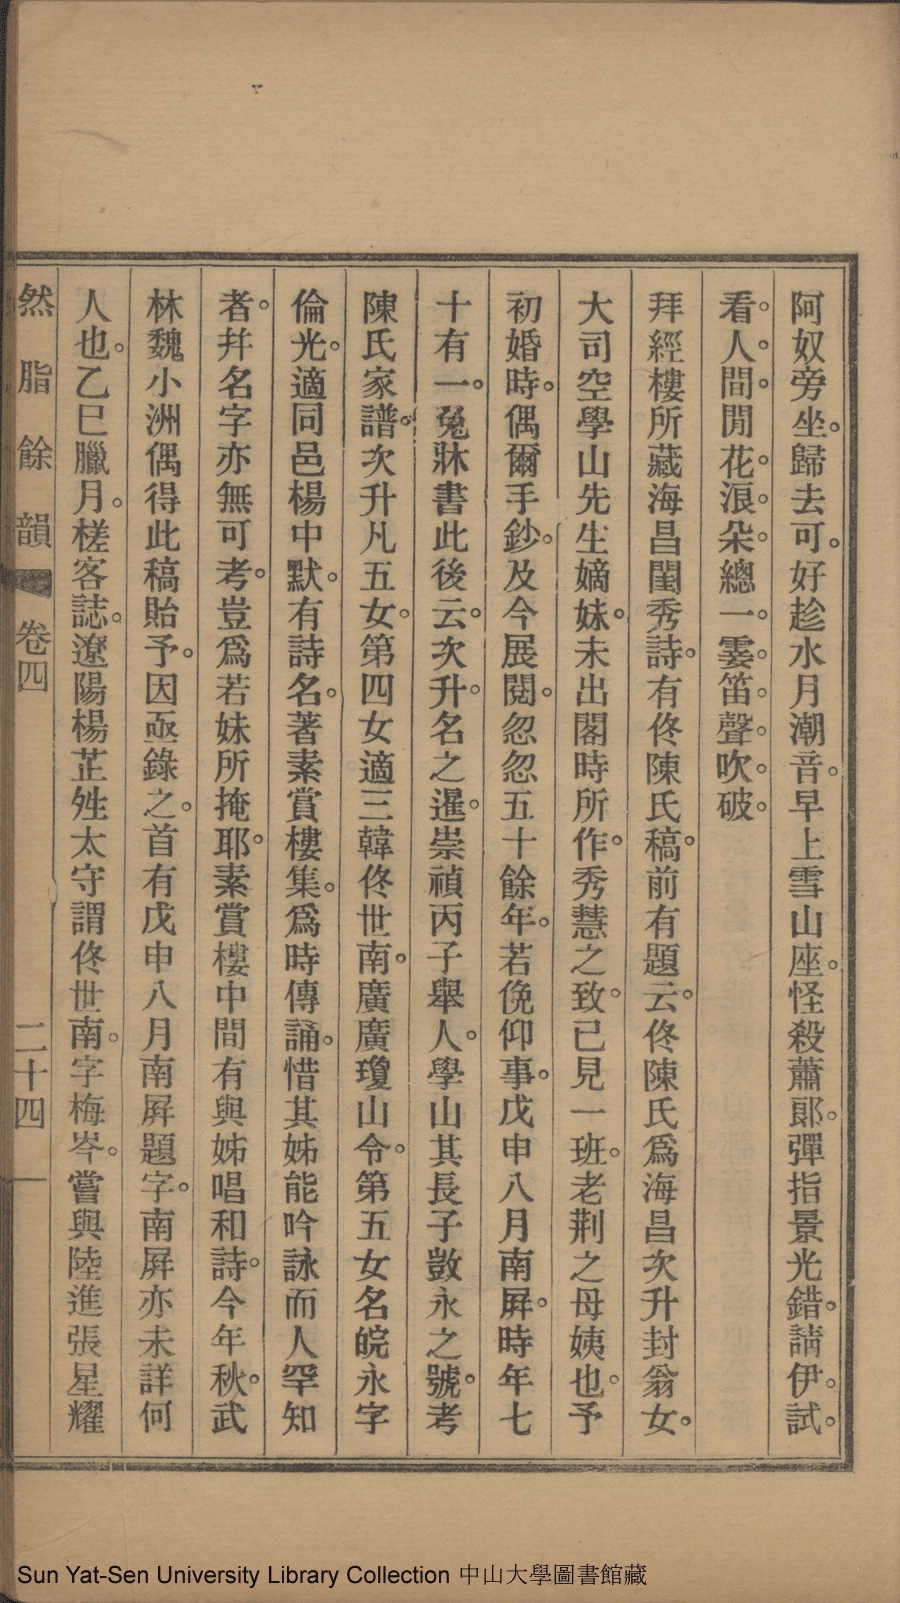 阿奴旁坐。歸去可。好趁水月潮音。早上雪山座。怪殺蕭郎。彈指景光錯。請伊。試。
看。人。間。閒花。浪。朵。總一。霎。笛。聲。吹。破。
拜經樓所藏海昌閨秀詩。有佟陳氏稿。前有題云。佟陳氏爲海昌次升封翁女。
大司空學山先生嫡妹。未出閣時所作。秀慧之致。已見一班。老荆之母姨也。予
初婚時。偶爾手鈔。及今展閱。忽忽五十餘年。若俛仰事。戊申八月南屏。時年七
十有一。兔牀書此後云。次升。名之暹。崇禎丙子舉人。學山其長子敳永之號。考
陳氏家譜。次升凡五女。第四女適三韓佟世南。廣廣瓊山令。第五女名皖永字
倫光。適同邑楊中默。有詩名。著素賞樓集。爲時傳誦。惜其姊能吟詠而人罕知
者。幷名字亦無可考。豈爲若妹所掩耶。素賞樓中間有與姊唱和詩。今年秋。武
林魏小洲偶得此稿貽予。因亟錄之。首有戊申八月南屛題字。南屛亦未詳何
人也。乙巳臘月。槎客誌。遼陽楊芷甡太守謂佟世南。字梅岑。嘗與陸進張星耀
然脂餘韻 卷四 二十四
Sun Yat-Sen University Library Collection 中山大學圖書館藏